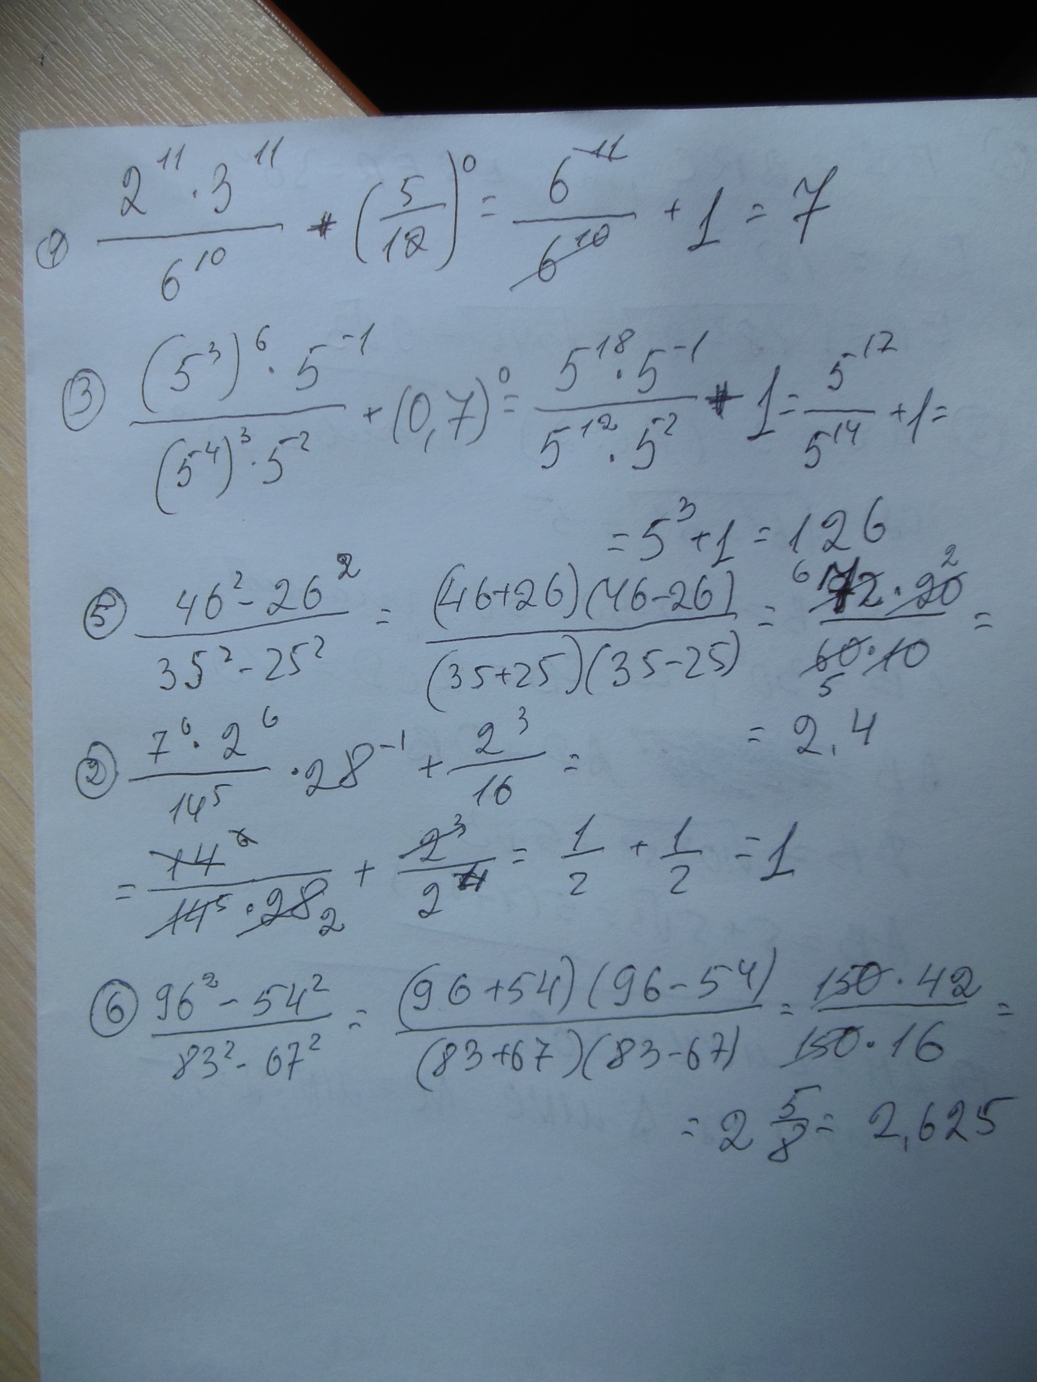 ① (2^11 · 3^11)/6^10 + (5/12)^0 = 6^11/6^10 + 1 = 7
③ ((5^3)^6 · 5^-1)/((5^4)^3 · 5^2) + (0,7)^0 = (5^18 · 5^-1)/(5^12 · 5^2) + 1 = 5^17/5^14 + 1 =
= 5^3 + 1 = 126
⑤ (46^2 - 26^2)/(35^2 - 25^2) = ((46+26)(46-26))/((35+25)(35-25)) = (72 · 20)/(60 · 10) = 6 2 5
= 2,4
② (7^6 · 2^6)/14^5 · 28^-1 + 2^3/16 =
= 14^6/(14^5 · 28) 2 + 2^3/2^4 = 1/2 + 1/2 = 1
⑥ (96^2 - 54^2)/(83^2 - 67^2) = ((96+54)(96-54))/((83+67)(83-67)) = (150 · 42)/(150 · 16) =
= 2 5/8 = 2,625